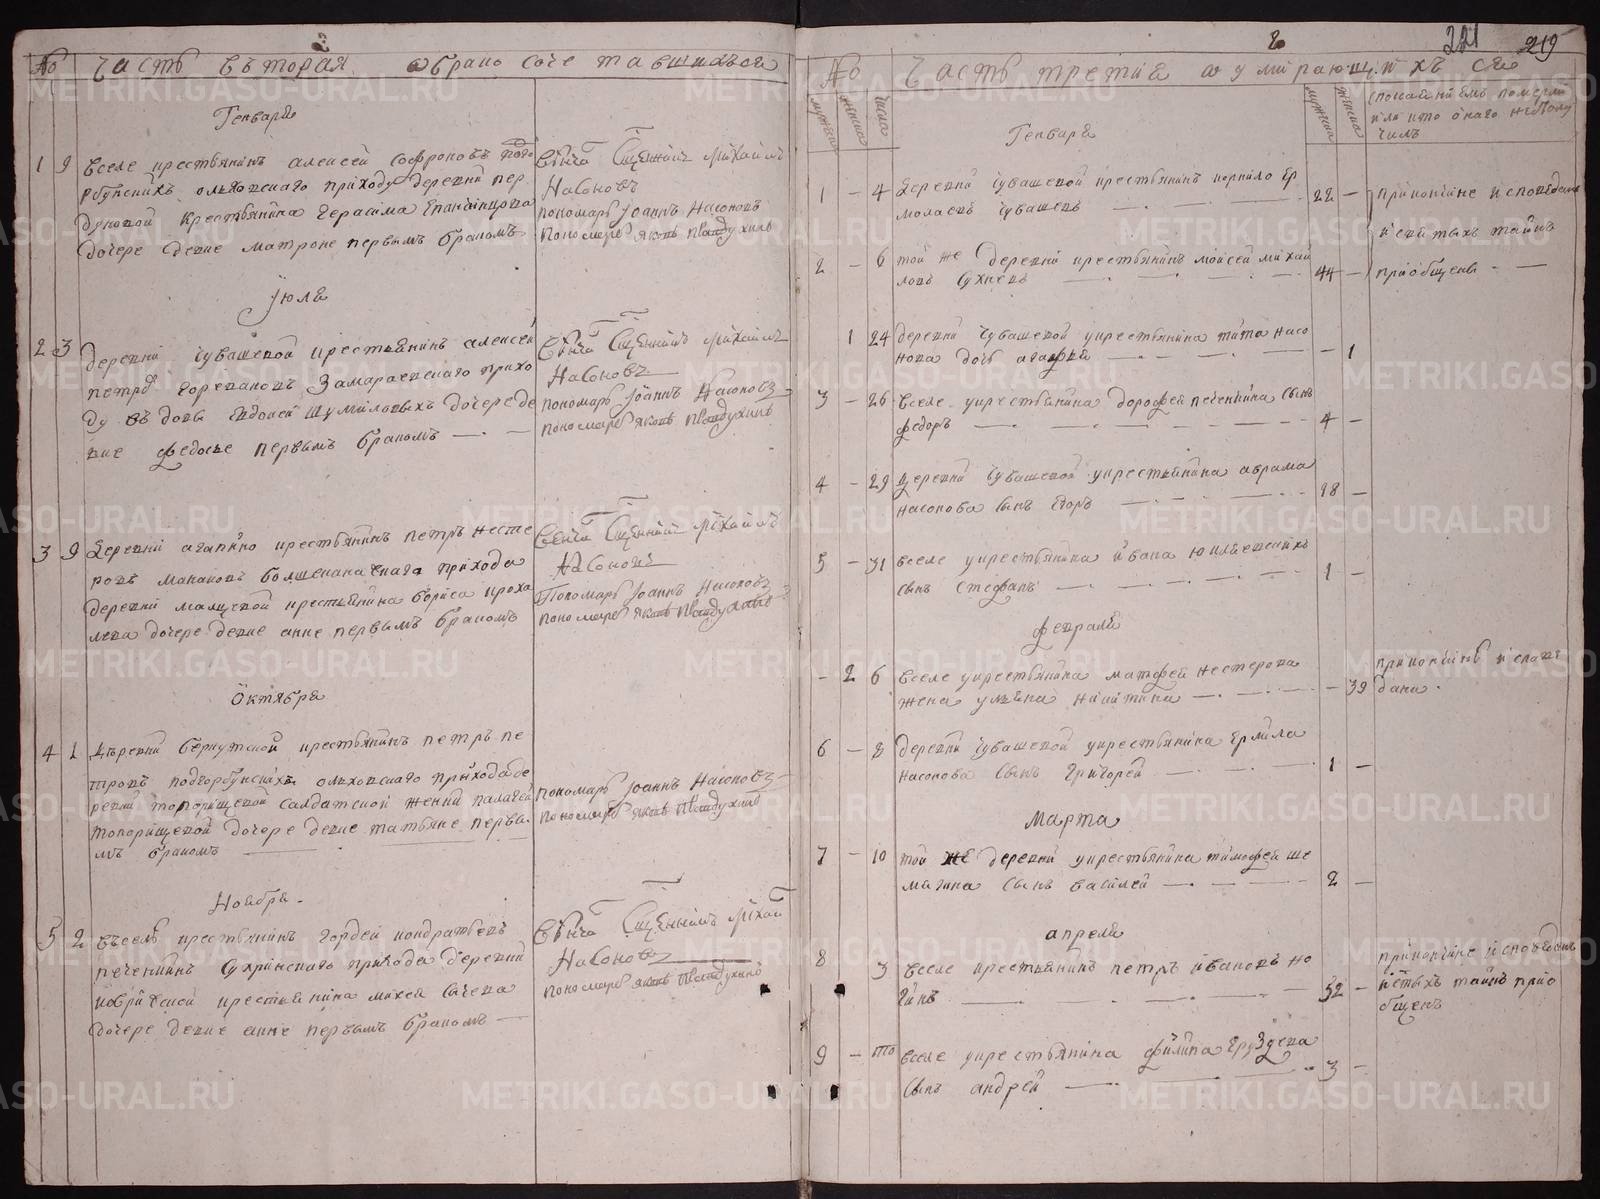 2
№ Часть вторая о брако сочетавшихся
Генваря
1 9 Вселе крестьянинъ алексей софроновъ подго
рбунскихъ ольховскаго приходу деревни пер
дуновой крестьянина герасима Епанчинцова
дочере девке матроне первымъ бракомъ
венчал Священникъ Михаилъ
Насоновъ
пономарь Иоаннъ Насоновъ
пономарь яковъ
Июля
2 3 деревни чувашевой крестьянинъ алексей
петровъ горевановъ Замараевскаго прихо
ду въдовы Евдокеи шумиловыхъ дочере де
вке федосье первымъ бракомъ
венчал Священникъ Михаилъ
Насоновъ
пономарь Иоаннъ Насоновъ
пономарь яковъ
3 9 Деревни агапино крестьянинъ петръ несте
ровъ макаровъ прихода
деревни крестьянина бориса проко
дочере девке анне первымъ бракомъ
венчал Священникъ Михаилъ
Насоновъ
Пономарь Иоаннъ Насоновъ
пономарь яковъ
Октября
4 1 Деревни крестьянинъ петръ пе
тровъ подгорбунскихъ ольховскаго прихода де
ревни топорищевой салдатской женки пелагеи
топорищевой дочере девке татьяне первы
мъ бракомъ
пономарь Иоаннъ Насоновъ
пономарь яковъ
Ноября
5 2 Въселе крестьянинъ гордей кондратьевъ
печенкинъ сухринскаго прихода деревни
крестьянина михея сычева
дочере девке анне первымъ бракомъ
венчал Священникъ Михаи
Насоновъ
пономарь яковъ
2 221 219
№ Часть третия о умирающихъ
мужеска женска числа
мужеска женска
с покаяниемъ померли
или кто онаго неполу
чилъ
Генваря
1 – 4 Деревни чувашевой крестьянинъ корнило Ер
молаевъ чувашевъ 22 –
при кончине исповеданъ
и святыхъ тайнъ
2 – 6 той же деревни крестьянинъ моисей михай
ловъ сухневъ 44 –
приобщенъ
1 24 деревни чувашевой у крестьянина тита насо
нова дочь агафья – 1
3 – 26 Вселе у крестьянина дорофея печенкина сынъ
федоръ 4 –
4 – 29 деревни чувашевой у крестьянина аврама
насонова сынъ Егоръ 18 –
5 – 31 вселе у крестьянина ивана
сынъ стефанъ 1 –
февраля
- 2 6 Вселе у крестьянина матфея нестерова
жена ульяна никитина – 39
при кончинъ испове
дана.
6 – 8 деревни чувашевой у крестьянина Ермила
насонова сынъ григорей 1 –
Марта
7 – 10 той же деревни у крестьянина тимофея ше
магина сынъ василей 2 –
апреля
8 3 Вселе крестьянинъ петръ ивановъ но
гинъ 52 –
при кончине исповеданъ
и стыхъ тайнъ прио
бщенъ
9 – то Вселе у крестьянина филипа груздева
сынъ андрей 3 –
METRIKI.GASO-URAL.RU